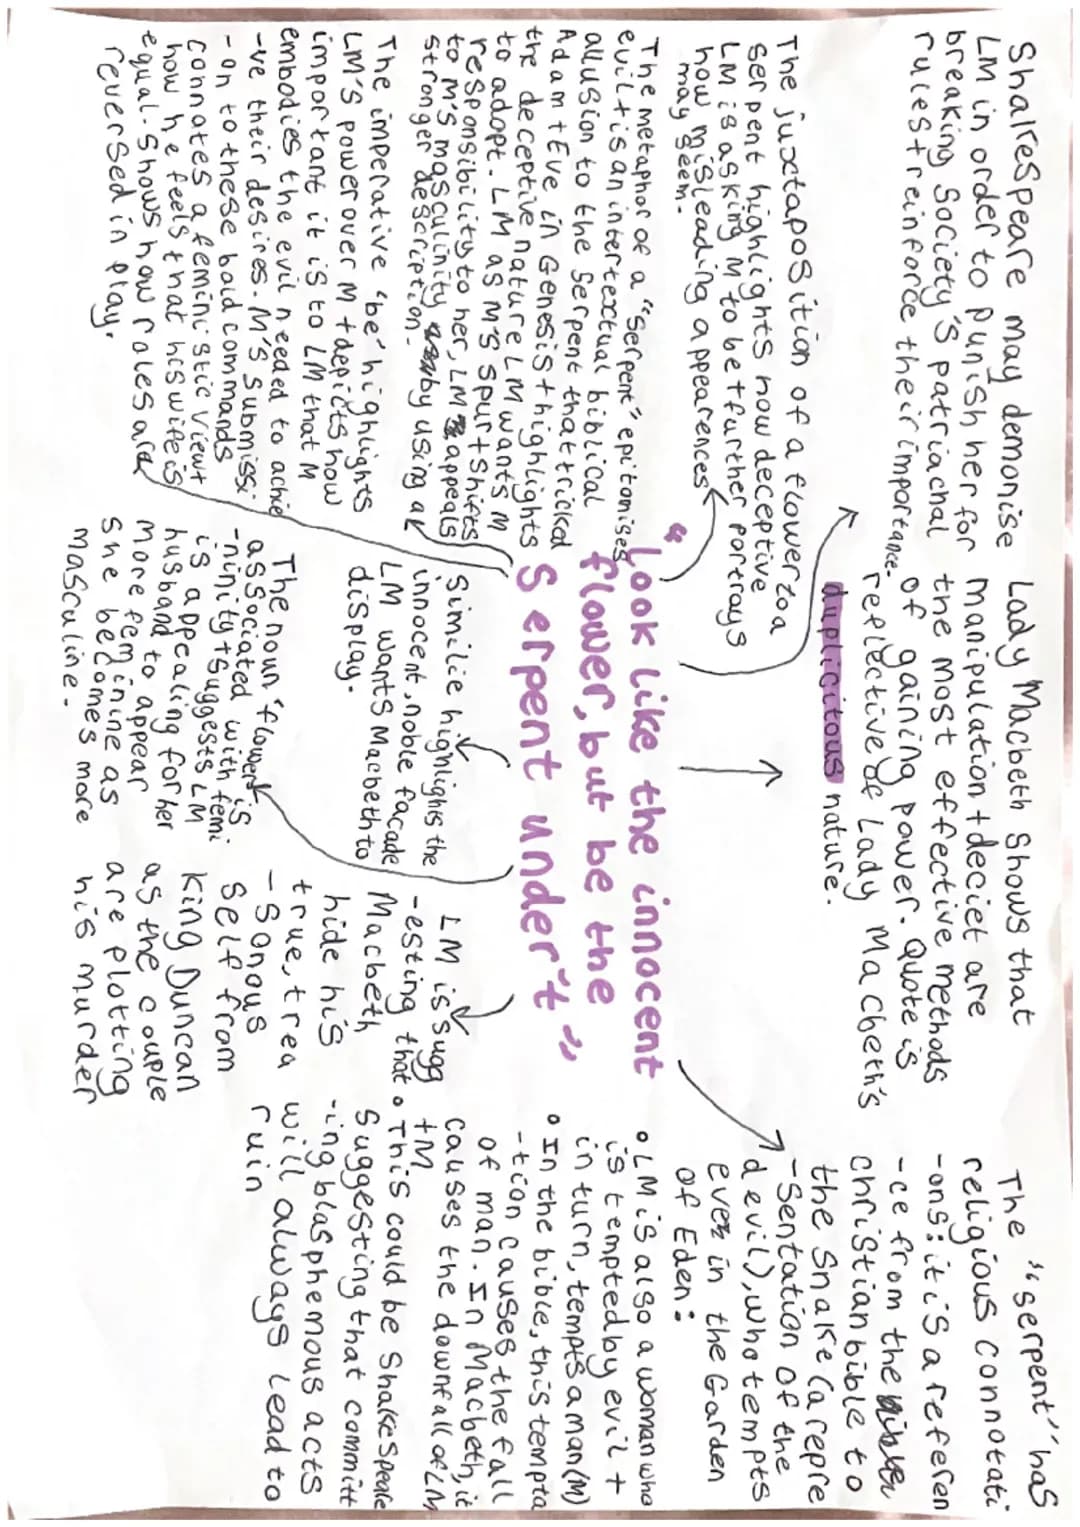 Shakespeare may demonise
LM in order to punish her for
breaking society's patriachal
rules + reinforce their importance.
Lady Macbeth Shows that
manipulation + deciet are
the most effective methods
of gaining power. Quote is
reflective of Lady Macbeth's
duplicitous nature.
The "serpent" has
religious connotati
-ons: it is a referen
-ce from the
christian bible to
the snake (a repre
-sentation of the
devil), who tempts
eve in the Garden
of Eden:
• LM is also a woman who
is tempted by evil +
in turn, tempts a man (M)
• In the bible, this tempta
-tion causes the fall
of man. In Macbeth, it
causes the downfall of LM
+M
• This could be Shakespeare
suggesting that committ
-ing blasphemous acts
will always lead to
ruin
The juxtaposition of a flower to a
serpent highlights how deceptive
LM is asking M to be + further portrays
how misleading appearences
may seem.
The metaphor of a "serpent" epitomises
evil + is an intertextual biblical
allusion to the serpent that tricked
Adam + Eve in Genesis + highlights
the deceptive nature LM wants M
to adopt. LM as M's spur + shifts
responsibility to her, LM appeals
to M's masculinity by using a
stronger description.
The imperative 'be' highlights
LM's power over M + depicts how
important it is to LM that M
embodies the evil needed to achie
-ve their desires. M's submissi
-on to these bold commands
connates a feministic view +
how he feels that his wife is
equal. Shows how roles are
reversed in play.
"Look like the innocent
flower, but be the
Serpent under't"
Similie highlights the
innocent, noble facade
LM wants Macbeth to
display.
The noun 'flower' is
associated with femi
-ninity + suggests LM
is appealing for her
husband to appear
more feminine as
she becomes more
masculine.
LM is sugg
-esting that
Macbeth
hide his
true, trea
-sonous
self from
King Duncan
as the couple
are plotting
his murder